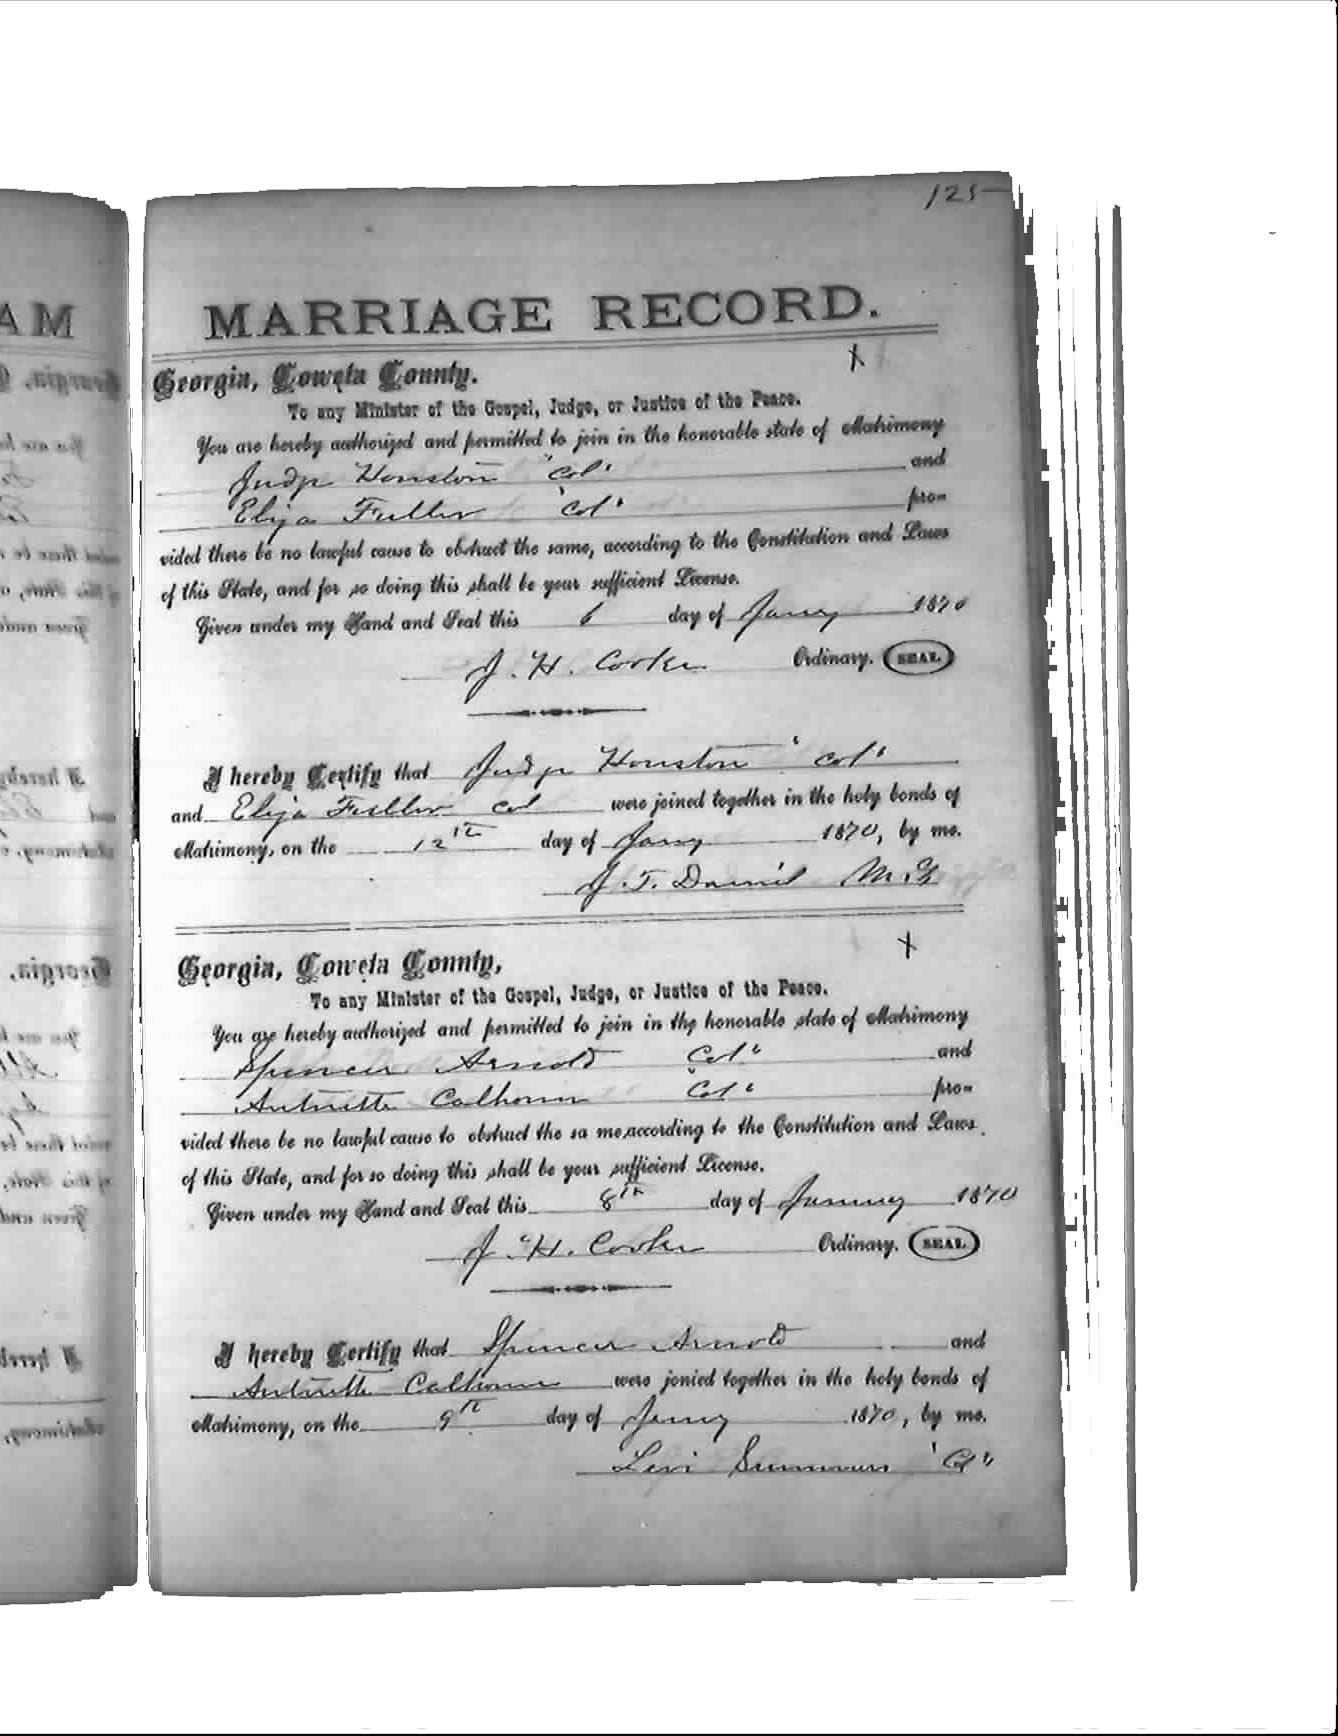 125
MARRIAGE RECORD.
Georgia, Coweta County.
To any Minister of the Gospel, Judge, or Justice of the Peace.
You are hereby authorized and permitted to join in the honorable state of Matrimony
Judge Houston "Col" and
Eliza Fuller "Col" pro-
vided there be no lawful cause to obstruct the same, according to the Constitution and Laws
of this State, and for so doing this shall be your sufficient License.
Given under my Hand and Seal this 6 day of Jany 1870
J. H. Cooke Ordinary. SEAL
I hereby Certify that Judge Houston "Col"
and Eliza Fuller Col were joined together in the holy bonds of
Matrimony, on the 12th day of Jany 1870, by me.
J. T. Daniel M.G.
Georgia, Coweta County,
To any Minister of the Gospel, Judge, or Justice of the Peace.
You are hereby authorized and permitted to join in the honorable state of Matrimony
Spencer Arnold Col" and
Calhoun "Col" pro-
vided there be no lawful cause to obstruct the sa me, according to the Constitution and Laws
of this State, and for so doing this shall be your sufficient License.
Given under my Hand and Seal this 8th day of January 1870
J. H. Cooke Ordinary. SEAL
I hereby Certify that Spencer Arnold and
Calhoun were jonied together in the holy bonds of
Matrimony, on the 9th day of Jany 1870, by me.
Levi Summers "Col"